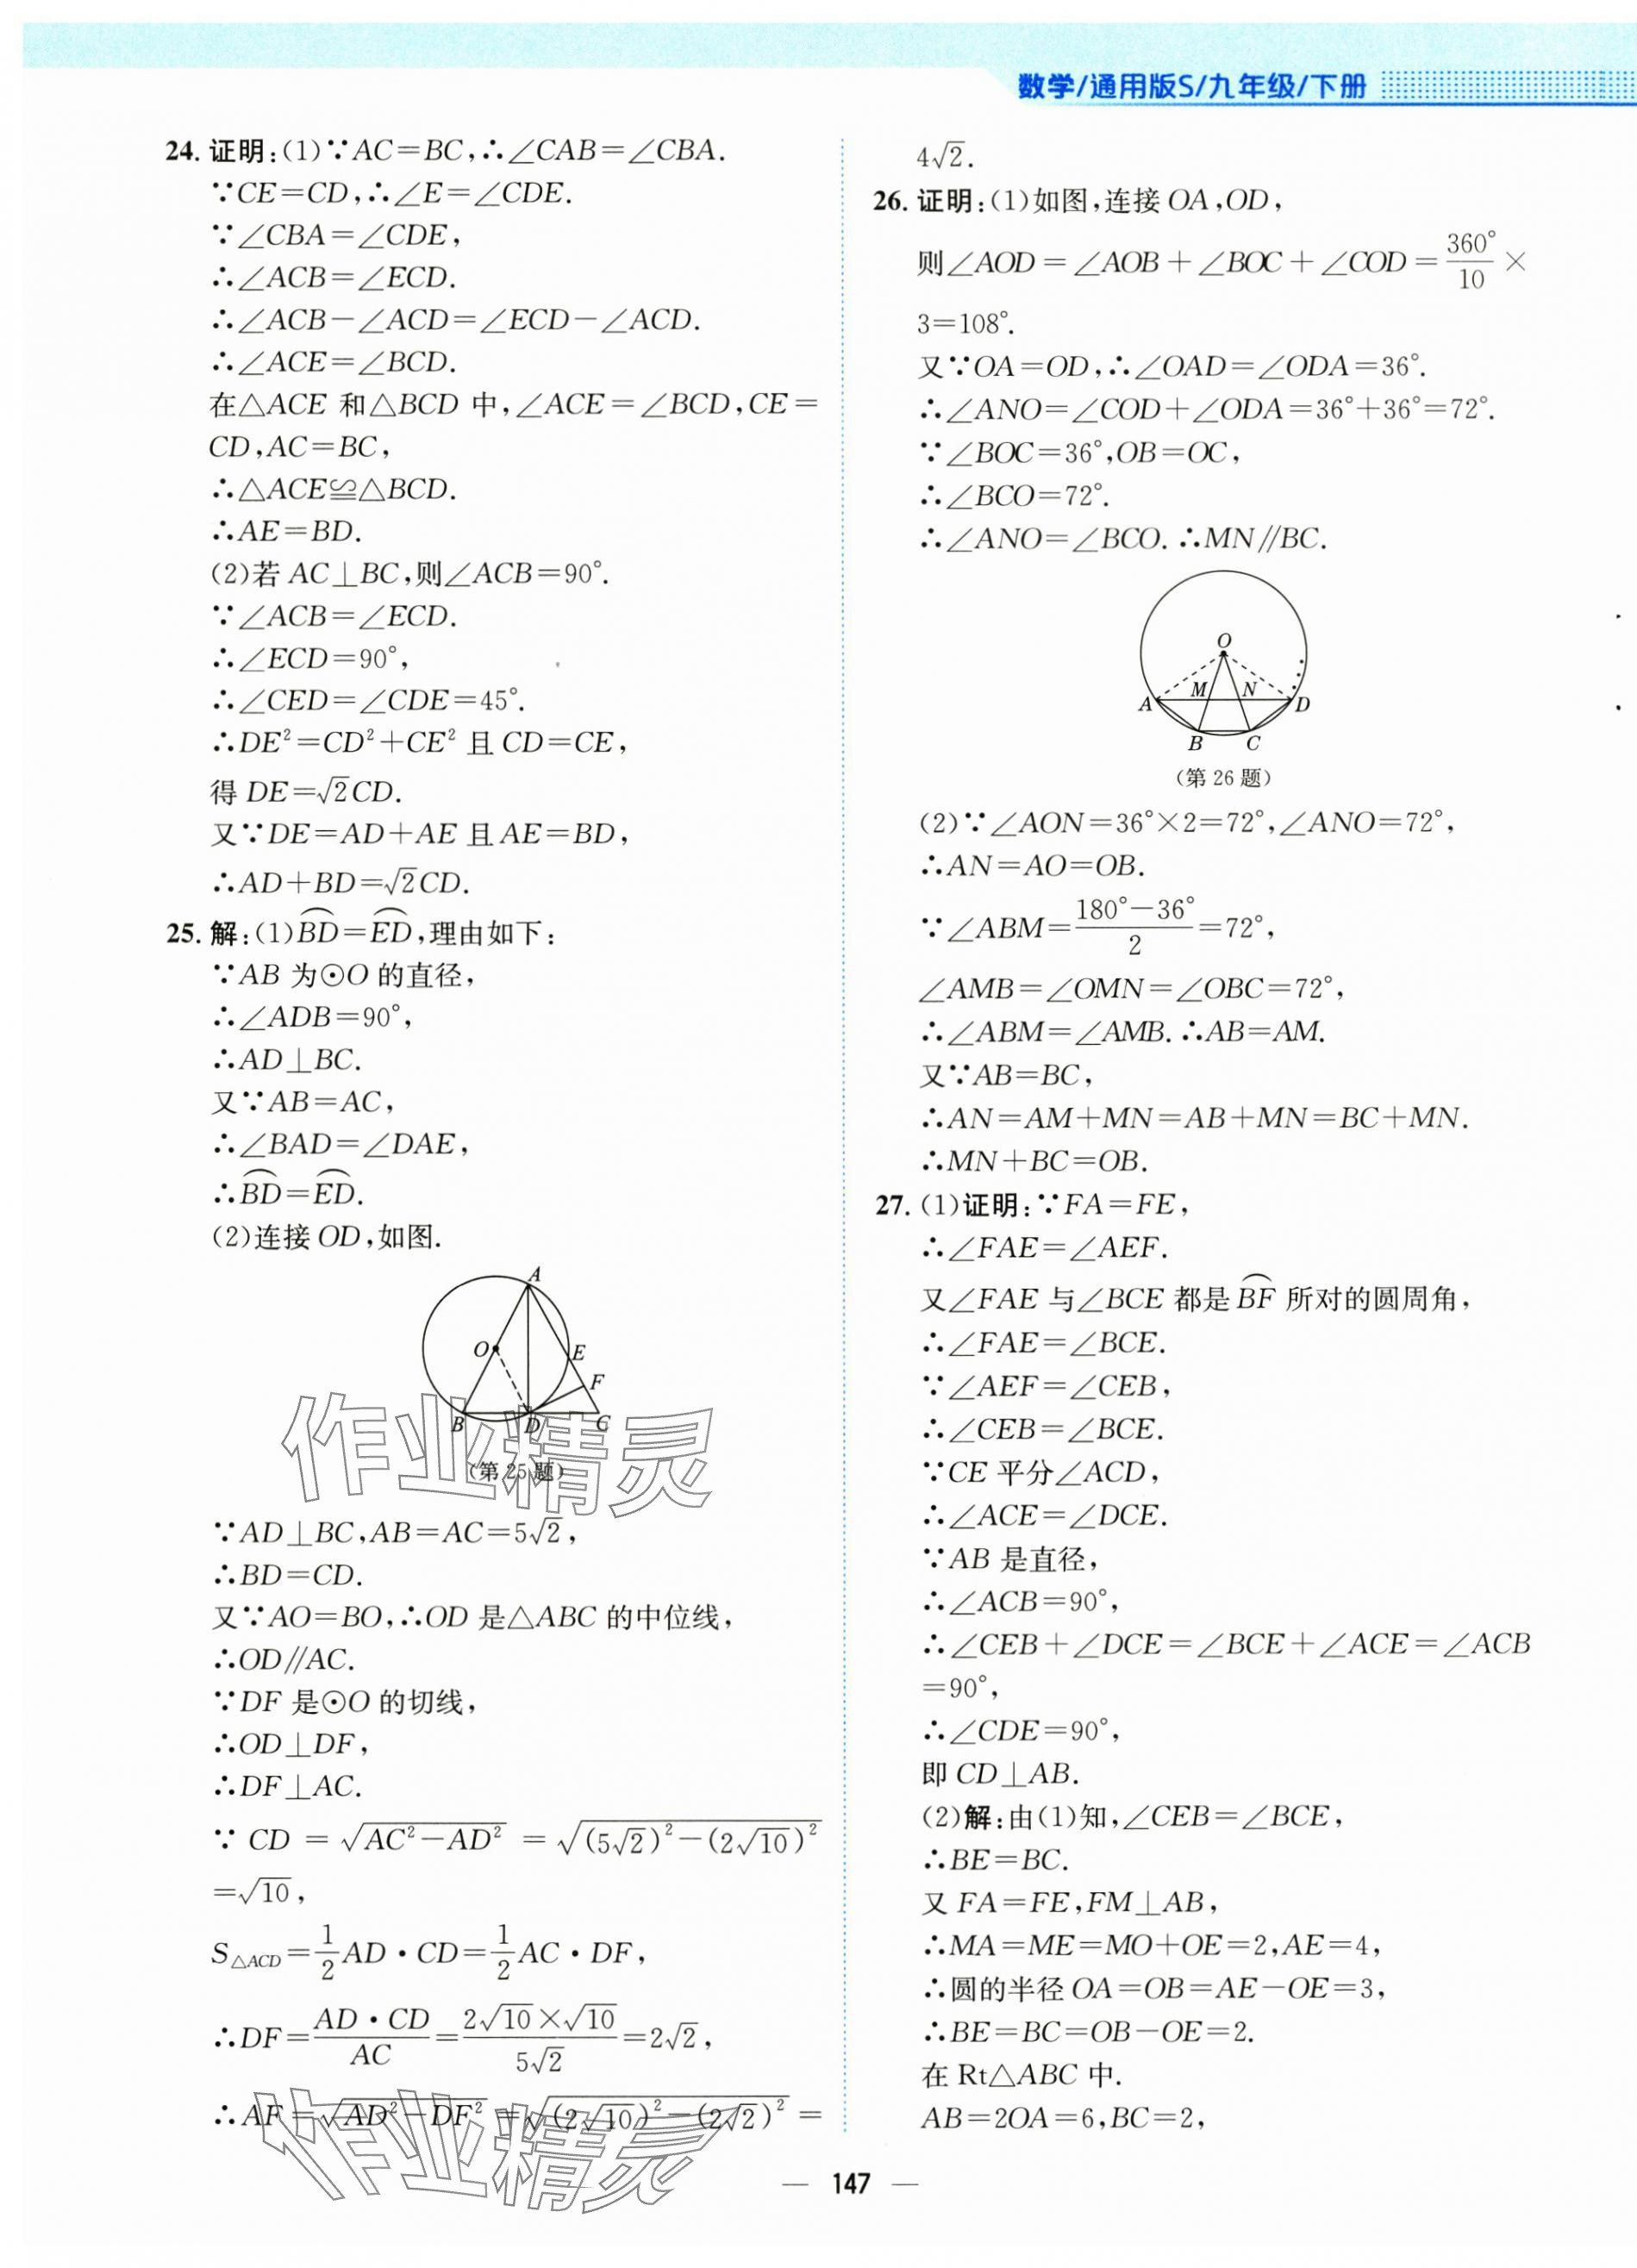 数学/通用版S/九年级/下册
24. 证明:(1)∵AC=BC,∴∠CAB=∠CBA.
∵CE=CD,∴∠E=∠CDE.
∵∠CBA=∠CDE,
∴∠ACB=∠ECD.
∴∠ACB-∠ACD=∠ECD-∠ACD.
∴∠ACE=∠BCD.
在△ACE 和△BCD 中,∠ACE=∠BCD,CE=
CD,AC=BC,
∴△ACE≌△BCD.
∴AE=BD.
(2)若 AC⊥BC,则∠ACB=90°.
∵∠ACB=∠ECD.
∴∠ECD=90°,
∴∠CED=∠CDE=45°.
∴DE²=CD²+CE² 且 CD=CE,
得 DE=√2CD.
又∵DE=AD+AE 且 AE=BD,
∴AD+BD=√2CD.
25. 解:(1)⌒BD=⌒ED,理由如下:
∵AB 为⊙O 的直径,
∴∠ADB=90°,
∴AD⊥BC.
又∵AB=AC,
∴∠BAD=∠DAE,
∴⌒BD=⌒ED.
(2)连接 OD,如图.
A
O
E
F
B
D
C
(第 25 题)
∵AD⊥BC,AB=AC=5√2,
∴BD=CD.
又∵AO=BO,∴OD 是△ABC 的中位线,
∴OD∥AC.
∵DF 是⊙O 的切线,
∴OD⊥DF,
∴DF⊥AC.
∵ CD = √(AC²-AD²) = √((5√2)²-(2√10)²)
=√10,
S△ACD=1/2 AD·CD=1/2 AC·DF,
∴DF=(AD·CD)/AC=(2√10×√10)/(5√2)=2√2,
∴AF=√(AD²-DF²)=√((2√10)²-(2√2)²)=
4√2.
26. 证明:(1)如图,连接 OA,OD,
则∠AOD=∠AOB+∠BOC+∠COD=360°/10×
3=108°.
又∵OA=OD,∴∠OAD=∠ODA=36°.
∴∠ANO=∠COD+∠ODA=36°+36°=72°.
∵∠BOC=36°,OB=OC,
∴∠BCO=72°.
∴∠ANO=∠BCO.∴MN∥BC.
O
M
N
A
D
B
C
(第 26 题)
(2)∵∠AON=36°×2=72°,∠ANO=72°,
∴AN=AO=OB.
∵∠ABM=(180°-36°)/2=72°,
∠AMB=∠OMN=∠OBC=72°,
∴∠ABM=∠AMB.∴AB=AM.
又∵AB=BC,
∴AN=AM+MN=AB+MN=BC+MN.
∴MN+BC=OB.
27. (1)证明:∵FA=FE,
∴∠FAE=∠AEF.
又∠FAE 与∠BCE 都是⌒BF 所对的圆周角,
∴∠FAE=∠BCE.
∵∠AEF=∠CEB,
∴∠CEB=∠BCE.
∵CE 平分∠ACD,
∴∠ACE=∠DCE.
∵AB 是直径,
∴∠ACB=90°,
∴∠CEB+∠DCE=∠BCE+∠ACE=∠ACB
=90°,
∴∠CDE=90°,
即 CD⊥AB.
(2)解:由(1)知,∠CEB=∠BCE,
∴BE=BC.
又 FA=FE,FM⊥AB,
∴MA=ME=MO+OE=2,AE=4,
∴圆的半径 OA=OB=AE-OE=3,
∴BE=BC=OB-OE=2.
在 Rt△ABC 中.
AB=2OA=6,BC=2,
作业精灵
作业精灵
— 147 —